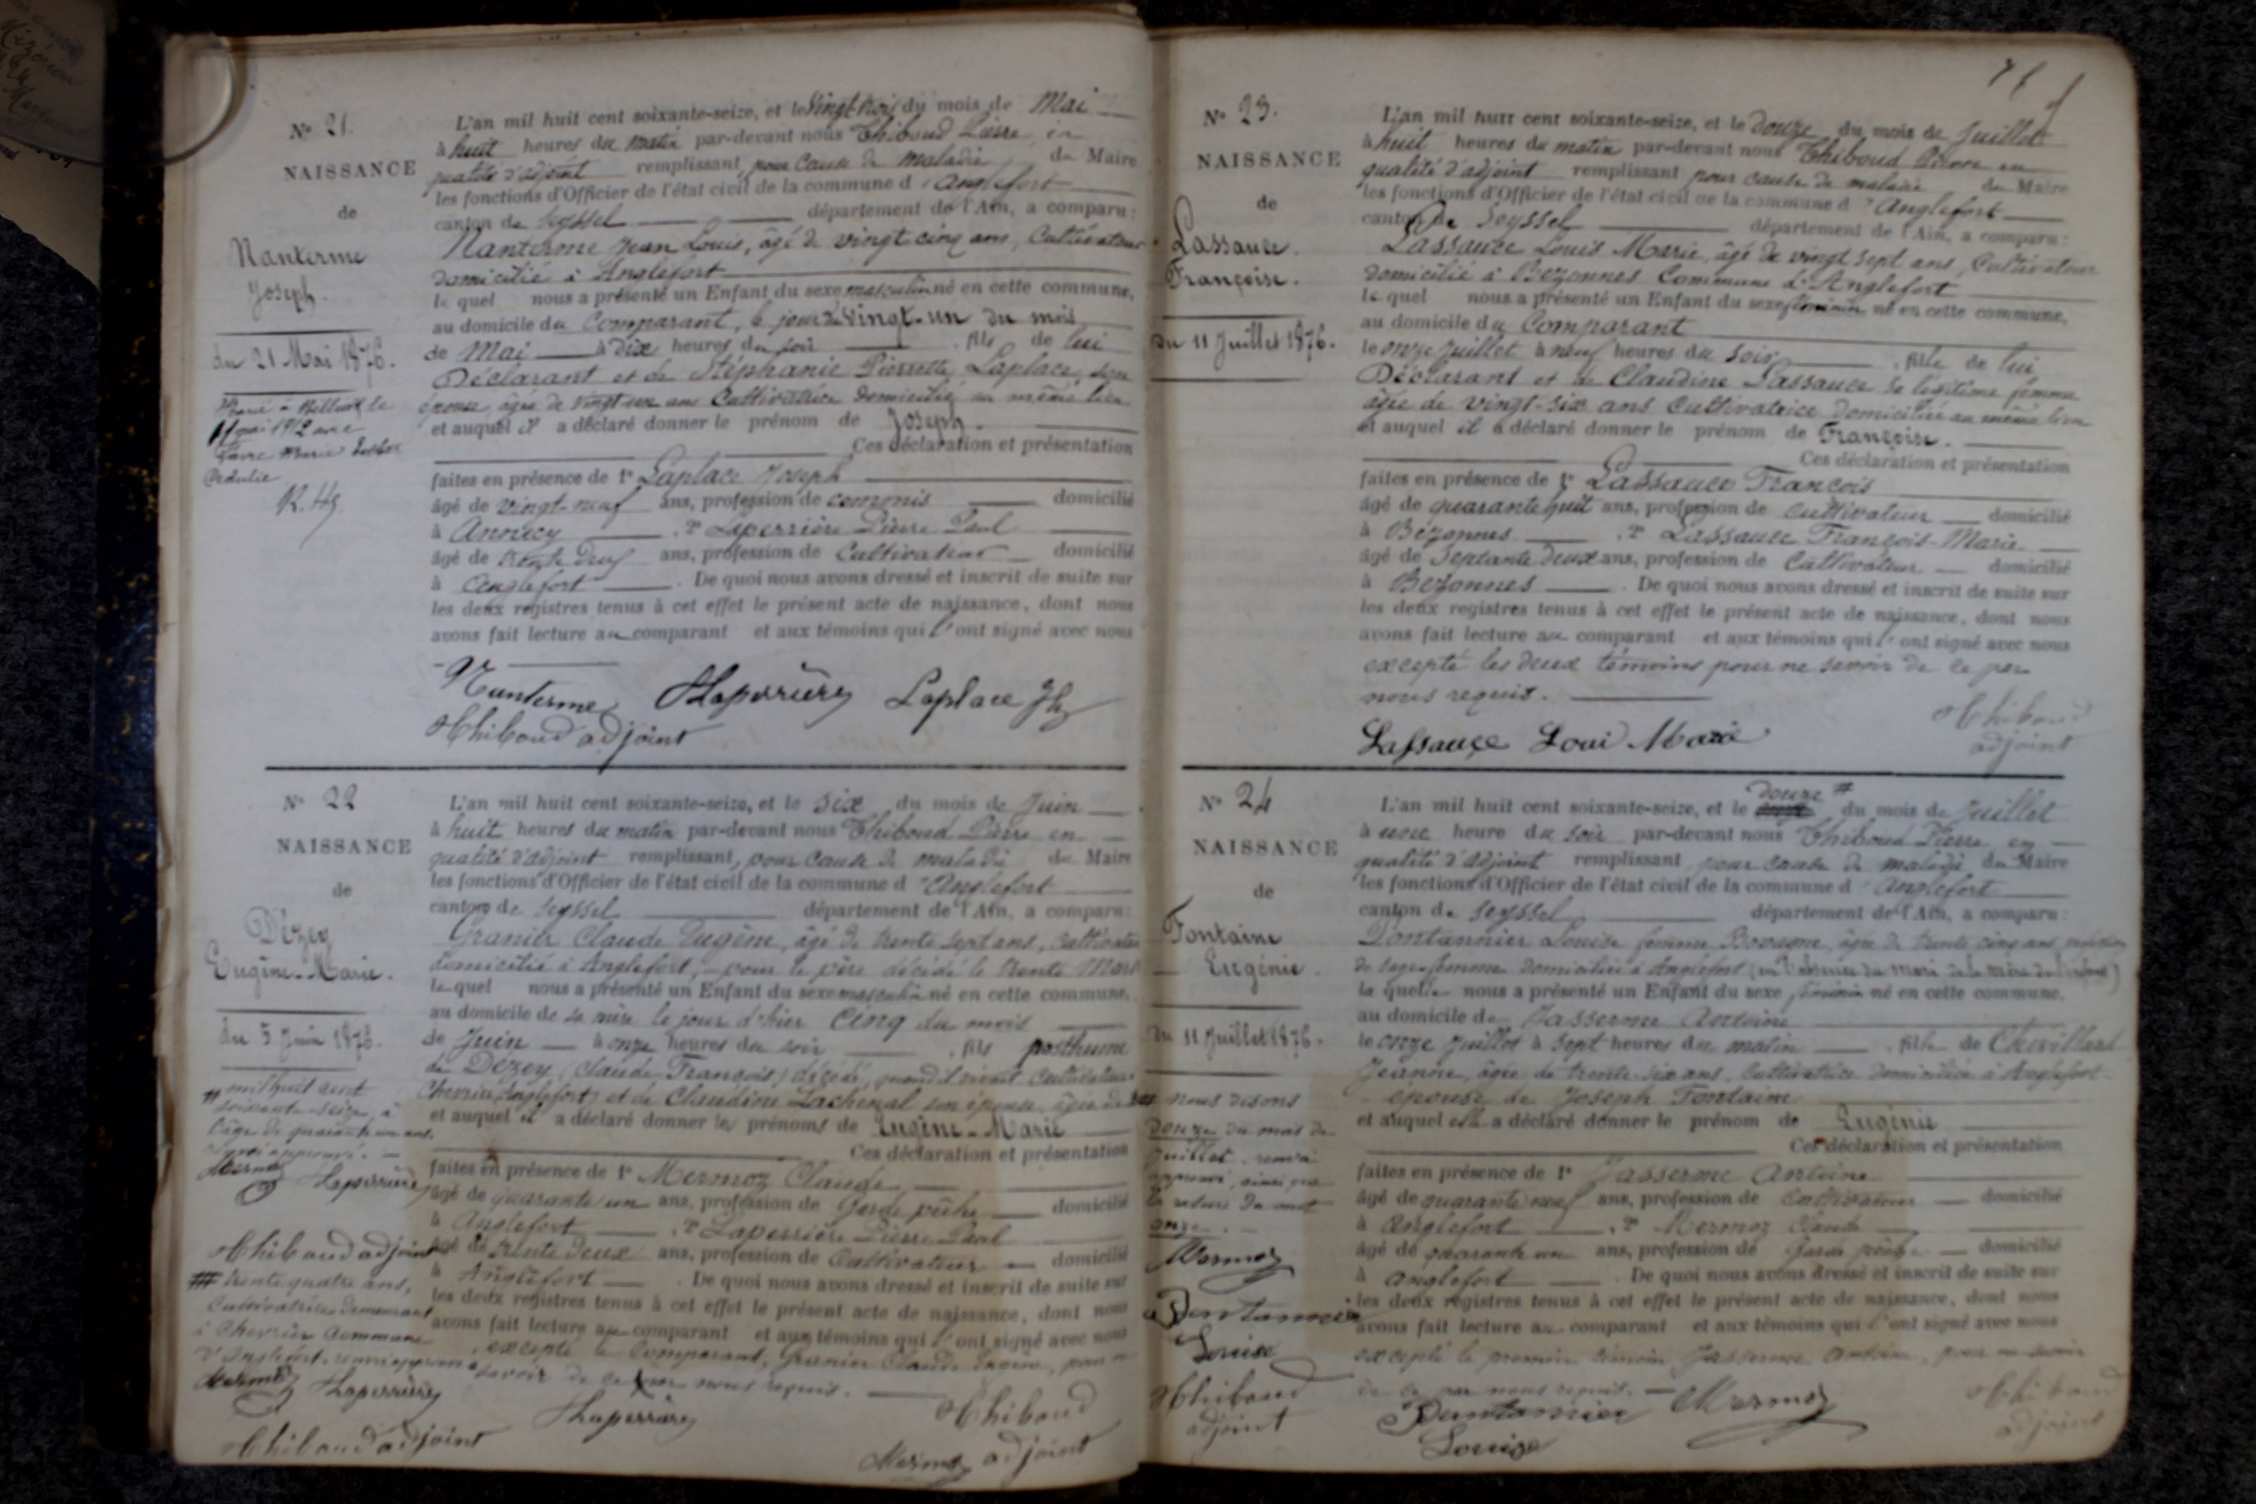 N° 21.
NAISSANCE
de
Nanterme
Joseph.
du 21 Mai 1876.
Marié à Belluod le
11 mai 1912 avec
Favre Marie
R. Hg
L'an mil huit cent soixante-seize, et le vingt trois du mois de Mai
à huit heures du matin par-devant nous Thiboud Pierre en
qualité d'adjoint remplissant pour cause de maladie du Maire
les fonctions d'Officier de l'état civil de la commune d'Anglefort
canton de Seyssel département de l'Ain, a comparu:
Nanterme Jean Louis, âgé de vingt cinq ans, Cultivateur
domicilié à Anglefort
le quel nous a présenté un Enfant du sexe masculin né en cette commune,
au domicile du Comparant, le jour de vingt-un du mois
de Mai à Dix heures du soir fils de lui
Déclarant et de Stéphanie Pierrette Laplace, son
épouse, âgée de vingt-un ans Cultivatrice domiciliée au même lieu
et auquel il a déclaré donner le prénom de Joseph.
Ces déclaration et présentation
faites en présence de 1° Laplace Joseph
âgé de vingt-neuf ans, profession de commis domicilié
à Annecy 2° Laperrière Pierre Paul
âgé de trente deux ans, profession de Cultivateur domicilié
à Anglefort. De quoi nous avons dressé et inscrit de suite sur
les deux registres tenus à cet effet le présent acte de naissance, dont nous
avons fait lecture au comparant et aux témoins qui l'ont signé avec nous
Nanterme Laperrière Laplace Jh
Thiboud adjoint
N° 22
NAISSANCE
de
Dézey
Eugène-Marie.
du 5 Juin 1876.
# mil huit cent
soixante-seize, à
l'âge de quarante un ans,
renvoi approuvé.
Mermoz Laperrière
Thiboud adjoint
## trente quatre ans,
Cultivatrice demeurant
à Chevrier Commune
d'Anglefort. renvoi approuvé
Mermoz Laperrière
Thiboud adjoint
L'an mil huit cent soixante-seize, et le six du mois de Juin
à huit heures du matin par-devant nous Thiboud Pierre en
qualité d'adjoint remplissant pour cause de maladie du Maire
les fonctions d'Officier de l'état civil de la commune d'Anglefort
canton de Seyssel département de l'Ain, a comparu:
Granier Claude Eugène, âgé de trente sept ans, cultivateur
domicilié à Anglefort, pour le père décédé le trente Mars
le quel nous a présenté un Enfant du sexe masculin né en cette commune,
au domicile de sa mère le jour d'hier Cinq du mois
de Juin à onze heures du soir fils posthume
de Dézey (Claude François) décédé, quand il vivait Cultivateur
Chevrier (Anglefort) et de Claudine Lachenal son épouse âgée de
et auquel il a déclaré donner les prénoms de Eugène-Marie
Ces déclaration et présentation
faites en présence de 1° Mermoz Claude
âgé de quarante un ans, profession de Garde pêche domicilié
à Anglefort 2° Laperrière Pierre Paul
âgé de trente deux ans, profession de Cultivateur domicilié
à Anglefort. De quoi nous avons dressé et inscrit de suite sur
les deux registres tenus à cet effet le présent acte de naissance, dont nous
avons fait lecture au comparant et aux témoins qui l'ont signé avec nous
excepté le Comparant, Granier Claude Eugène, pour ne
savoir de ce par nous requis.
Laperrière Thiboud
Mermoz adjoint
N° 23.
NAISSANCE
de
Lassauce
Françoise.
du 11 Juillet 1876.
L'an mil huit cent soixante-seize, et le douze du mois de Juillet
à huit heures du matin par-devant nous Thiboud Pierre en
qualité d'adjoint remplissant pour cause de maladie du Maire
les fonctions d'Officier de l'état civil de la commune d'Anglefort
canton de Seyssel département de l'Ain, a comparu:
Lassauce Louis Marie, âgé de vingt sept ans, Cultivateur
domicilié à Bezonnes Commune d'Anglefort
le quel nous a présenté un Enfant du sexe féminin né en cette commune,
au domicile du Comparant
le onze Juillet à neuf heures du soir fille de lui
Déclarant et de Claudine Lassauce sa légitime femme
âgée de vingt-six ans Cultivatrice domiciliée au même lieu
et auquel il a déclaré donner le prénom de Françoise.
Ces déclaration et présentation
faites en présence de 1° Lassauce François
âgé de quarante huit ans, profession de Cultivateur domicilié
à Bézonnes 2° Lassauce François-Marie
âgé de Septante deux ans, profession de Cultivateur domicilié
à Bezonnes. De quoi nous avons dressé et inscrit de suite sur
les deux registres tenus à cet effet le présent acte de naissance, dont nous
avons fait lecture au comparant et aux témoins qui l'ont signé avec nous
excepté les deux témoins pour ne savoir de ce par
nous requis.
Lassauce Loui Marie
Thiboud
adjoint
N° 24
NAISSANCE
de
Fontaine
Eugénie.
du 11 Juillet 1876.
# nous disons
douze du mois de
Juillet, renvoi
approuvé, ainsi que
la rature du mot
onze.
Mermoz
Dentannier
Louise
Thiboud
adjoint
L'an mil huit cent soixante-seize, et le douze # du mois de Juillet
à une heure du soir par-devant nous Thiboud Pierre en
qualité d'adjoint remplissant pour cause de maladie du Maire
les fonctions d'Officier de l'état civil de la commune d'Anglefort
canton de Seyssel département de l'Ain, a comparu:
Dontannier Louise femme Bovagne, âgée de trente cinq ans, profession
de sage-femme domiciliée à Anglefort (en l'absence du mari de la mère de l'enfant)
la quelle nous a présenté un Enfant du sexe féminin né en cette commune,
au domicile de Jasserme Antoine
le onze Juillet à sept heures du matin fille de Chevillard
Jeanne, âgée de trente-six ans, Cultivatrice domiciliée à Anglefort
épouse de Joseph Fontaine
et auquel elle a déclaré donner le prénom de Eugénie
Ces déclaration et présentation
faites en présence de 1° Jasserme Antoine
âgé de quarante neuf ans, profession de Cultivateur domicilié
à Anglefort 2° Mermoz Claude
âgé de quarante un ans, profession de Garde pêche domicilié
à Anglefort. De quoi nous avons dressé et inscrit de suite sur
les deux registres tenus à cet effet le présent acte de naissance, dont nous
avons fait lecture au comparant et aux témoins qui l'ont signé avec nous
excepté le premier témoin Jasserme Antoine, pour ne savoir
de ce par nous requis.
Dentannier Mermoz
Louise
Thiboud
adjoint